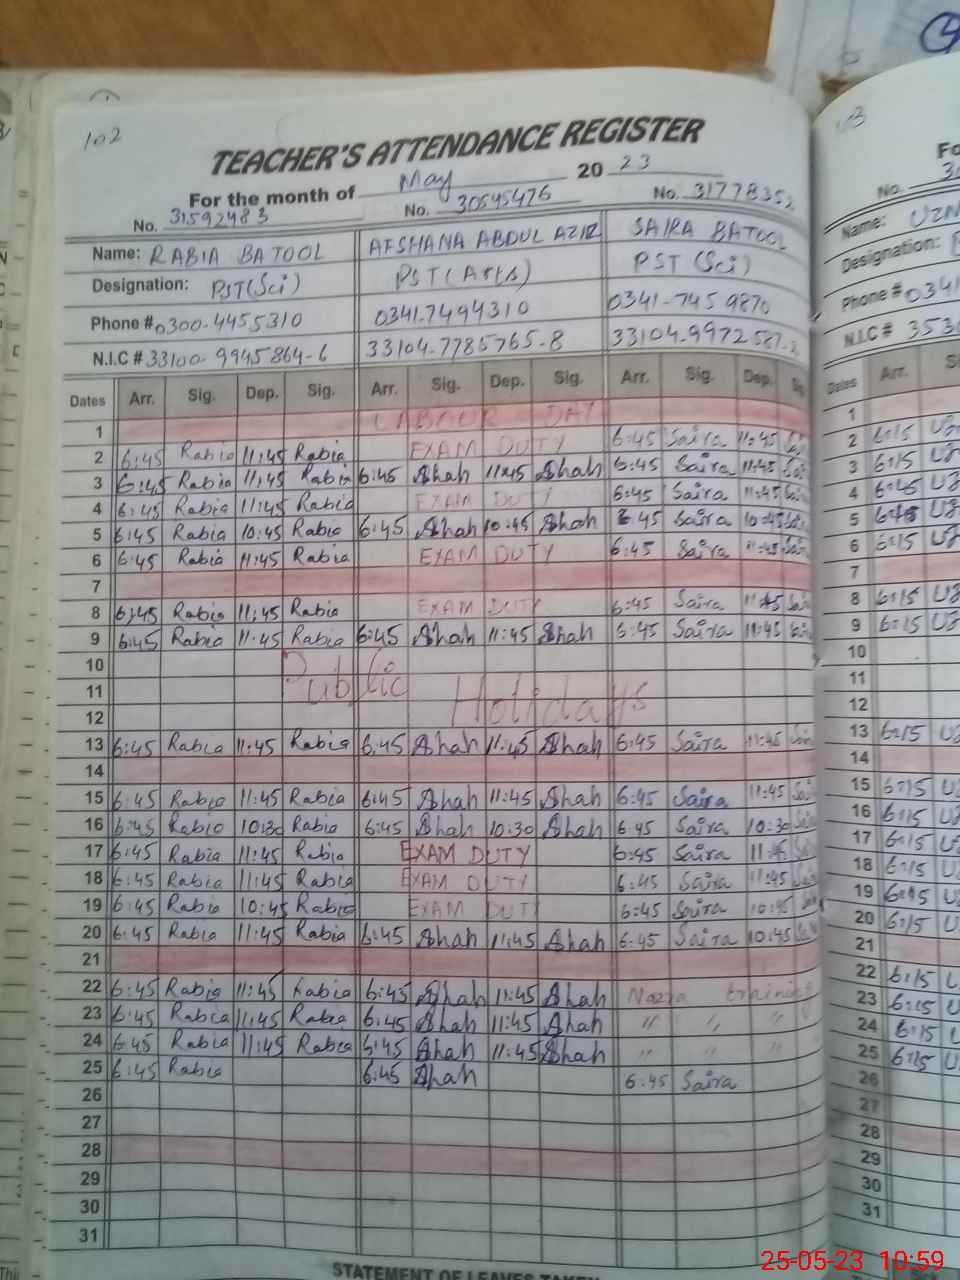 102
TEACHER'S ATTENDANCE REGISTER
For the month of May 2023
No. 31592483 No. 30545476 No. 31778352
Name: RABIA BATOOL AFSHANA ABDUL AZIZ SAIRA BATOOL
Designation: PST(Sci) PST(Arts) PST (Sci)
Phone # 0300-4455310 0341-7494310 0341-7459870
N.I.C # 33100-9945864-6 33104-7785765-8 33104-9972587-2
Dates Arr. Sig. Dep. Sig. Arr. Sig. Dep. Sig. Arr. Sig. Dep.
1 LABOUR DAY
2 6:45 Rabia 11:45 Rabia EXAM DUTY 6:45 Saira 11:45
3 6:45 Rabia 11:45 Rabia 6:45 Shah 11:45 Shah 6:45 Saira 11:45
4 6:45 Rabia 11:45 Rabia EXAM DUTY 6:45 Saira 11:45
5 6:45 Rabia 10:45 Rabia 6:45 Shah 10:45 Shah 6:45 Saira 10:45
6 6:45 Rabia 11:45 Rabia EXAM DUTY 6:45 Saira 11:45
7
8 6:45 Rabia 11:45 Rabia EXAM DUTY 6:45 Saira 11:45
9 6:45 Rabia 11:45 Rabia 6:45 Shah 11:45 Shah 6:45 Saira 11:45
10
11 Public Holidays
12
13 6:45 Rabia 11:45 Rabia 6:45 Shah 11:45 Shah 6:45 Saira 11:45
14
15 6:45 Rabia 11:45 Rabia 6:45 Shah 11:45 Shah 6:45 Saira 11:45
16 6:45 Rabia 10:30 Rabia 6:45 Shah 10:30 Shah 6:45 Saira 10:30
17 6:45 Rabia 11:45 Rabia EXAM DUTY 6:45 Saira 11:45
18 6:45 Rabia 11:45 Rabia EXAM DUTY 6:45 Saira 11:45
19 6:45 Rabia 10:45 Rabia EXAM DUTY 6:45 Saira 10:45
20 6:45 Rabia 11:45 Rabia 6:45 Shah 11:45 Shah 6:45 Saira 10:45
21
22 6:45 Rabia 11:45 Rabia 6:45 Shah 11:45 Shah training
23 6:45 Rabia 11:45 Rabia 6:45 Shah 11:45 Shah " " "
24 6:45 Rabia 11:45 Rabia 6:45 Shah 11:45 Shah " " "
25 6:45 Rabia 6:45 Shah 6:45 Saira
26
27
28
29
30
31
STATEMENT OF LEAVES TAKEN
No.
Name:
Designation:
Phone #
N.I.C #
Dates Arr.
1
2 6:15
3 6:15
4 6:15
5 6:15
6 6:15
7
8 6:15
9 6:15
10
11
12
13 6:15
14
15 6:15
16 6:15
17 6:15
18 6:15
19 6:15
20 6:15
21
22 6:15
23 6:15
24 6:15
25 6:15
26
27
28
29
30
31
25-05-23 10:59